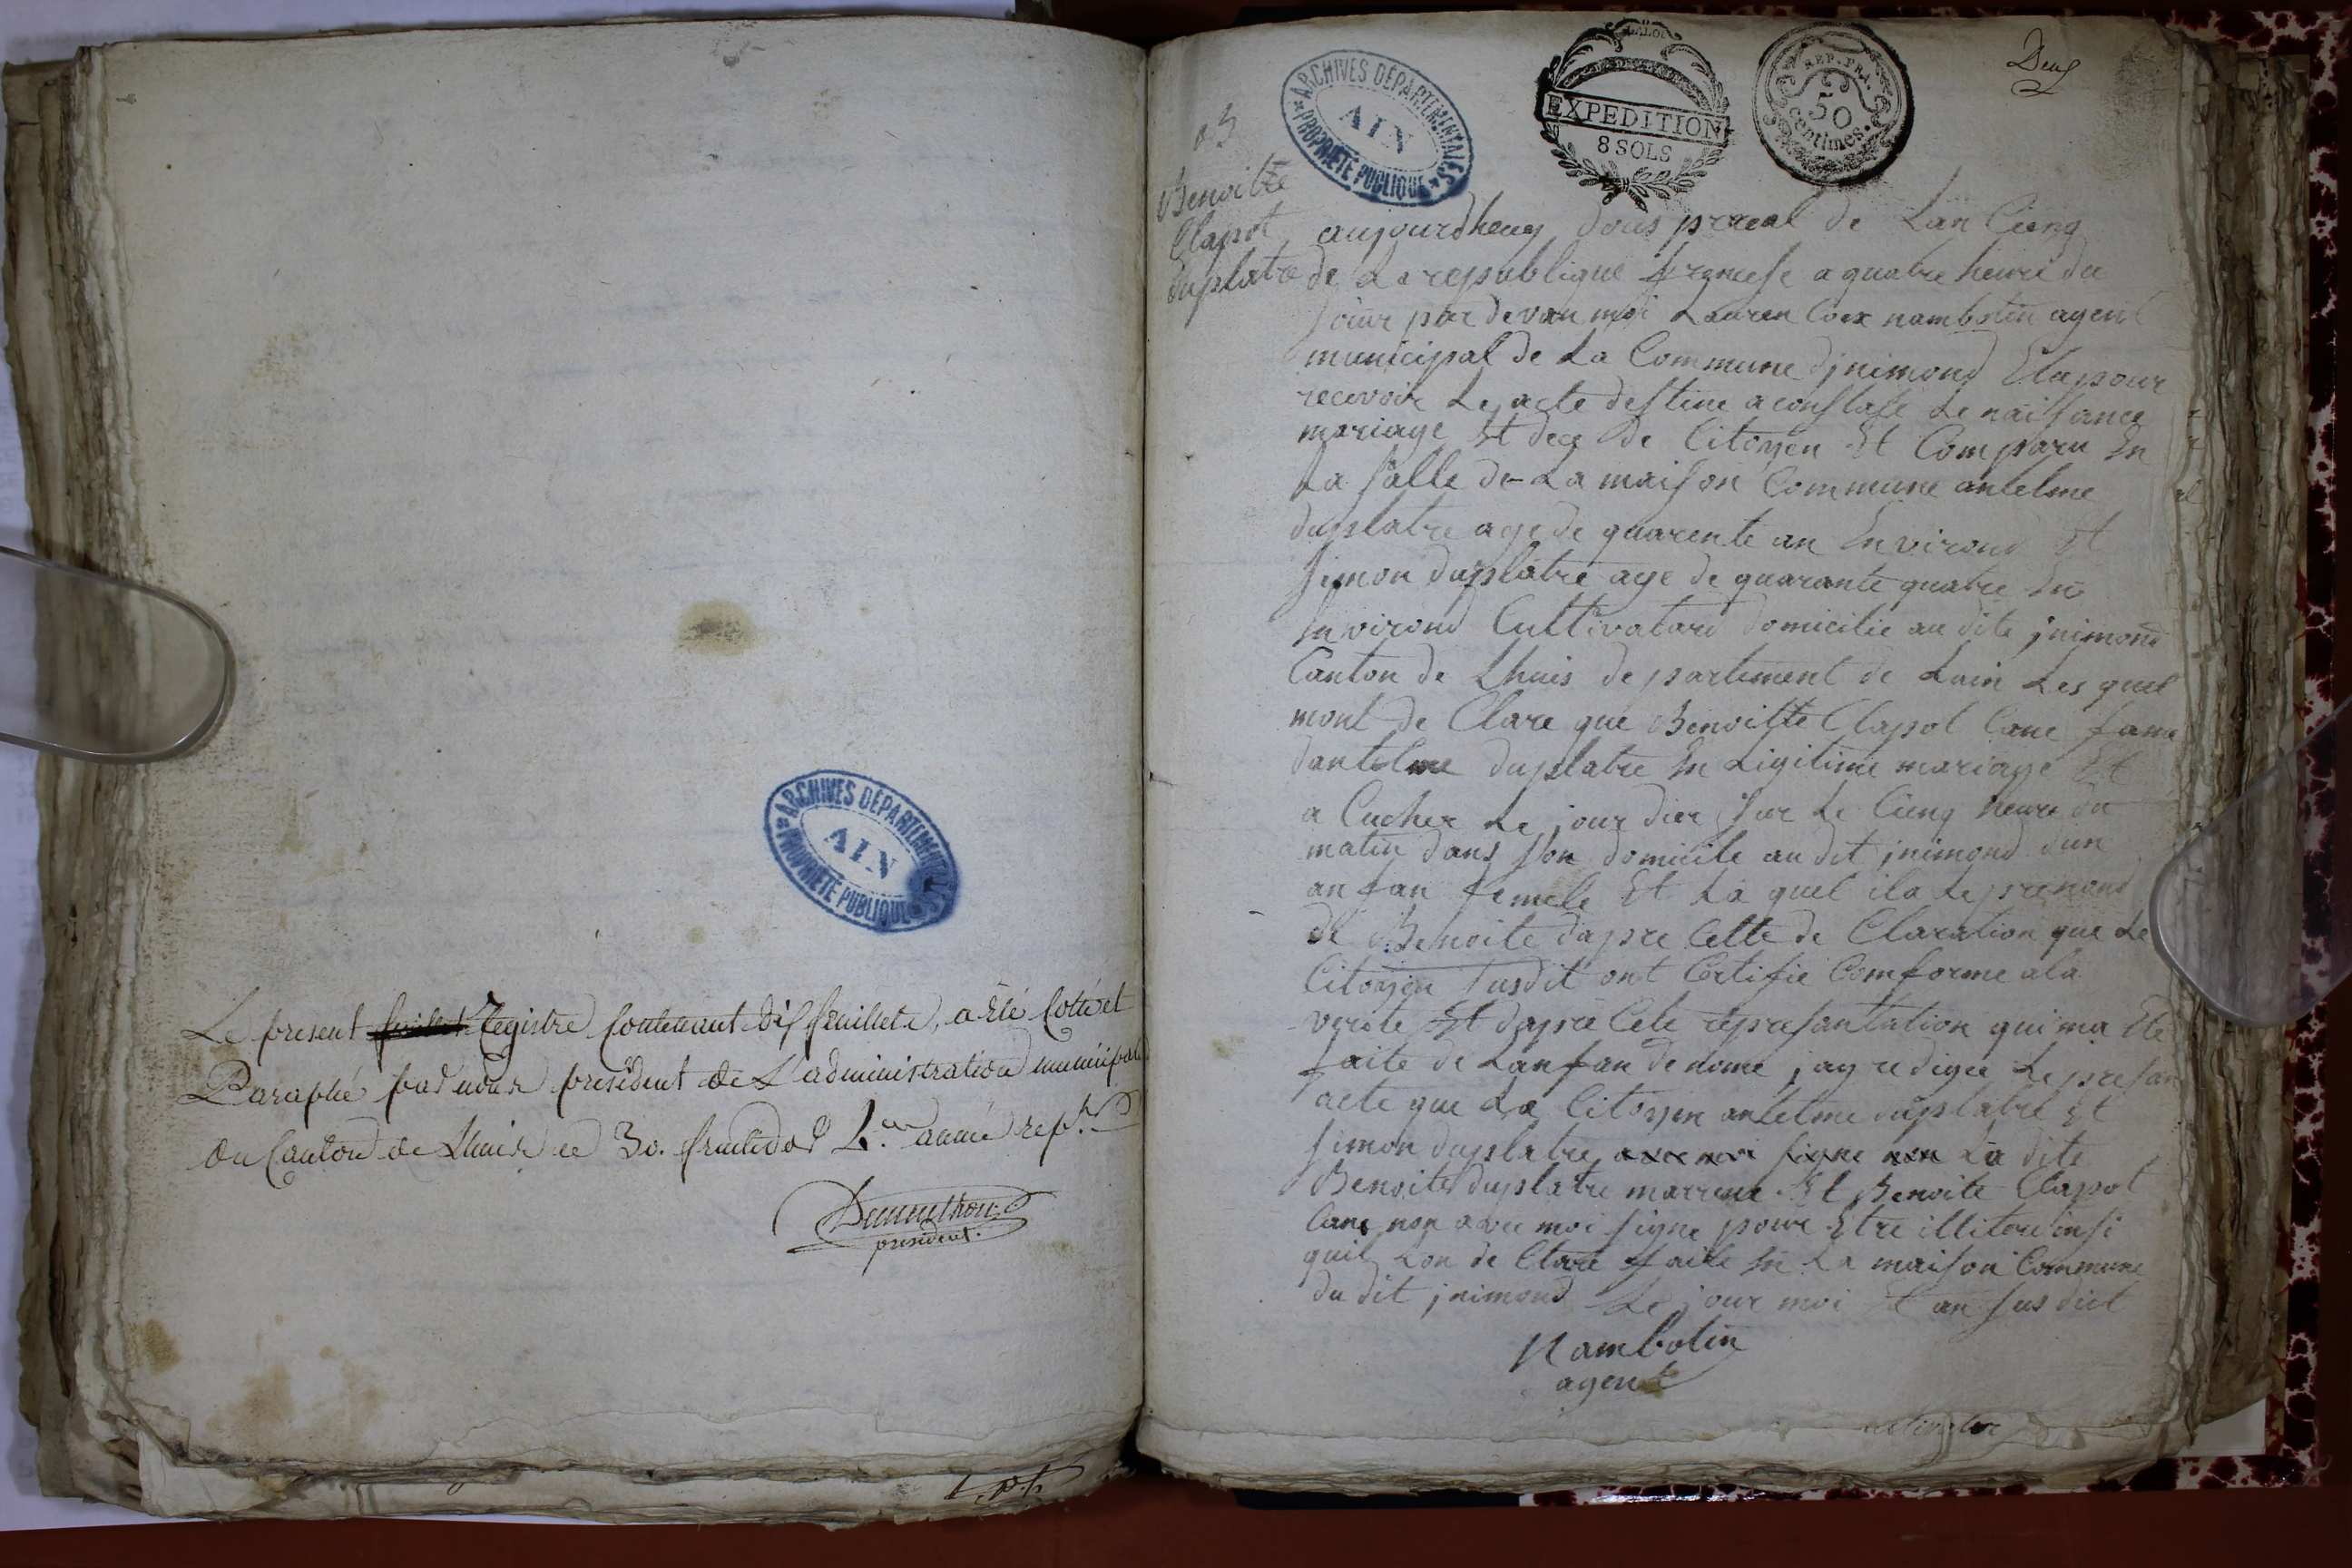 Le present feuillet Registre Contenant dix feuillets, a Eté Cotté et
Paraphé par nous president de L'administration municipale
du Canton de Lhuis ce 30. fructidor 4.e année rep.e
president.
ARCHIVES DÉPARTEMENTALES
AIN
PROPRIÉTÉ PUBLIQUE
ARCHIVES DÉPARTEMENTALES
AIN
PROPRIÉTÉ PUBLIQUE
LA LOI
EXPEDITION
8 SOLS
REP. FRA.
50
centimes.
Deux
Benoitte
Clapot
duplatre
aujourdheuy dous preral de Lan Cienq
de La republique francese a quatre heure du
soiur par devan moi Lauren Coex nambotin agent
municipal de La Commune djnimond Elu pour
recevoir Le acte destine a constate Le naissance
mariage Et dece de Citoyen Et Comparu En
La salle de La maison Commune antelme
duplatre age de quarente an Environd Et
simon duplatre age de quarante quatre
Environd Cultivatard domicilie au dite jnimond
Canton de Lhuis departement de Lain Les quel
mont de Clare que Benoitte Clapot Cane fame
dantelme duplatre En Ligitime mariage Et
a Cucher Le jour dier sur Le Cienq heure du
matin dans son domicile au dit jnimond dun
an fan femele Et La quel ila Le prenond
de Benoite dapre Cette de Claration que Le
Citoyen susdit ont Certifie Comforme ala
verite Et dapre Cete represantation qui ma Ete
faite de Lanfan denome jay redigee Le presan
acte que Le Citoyen antelme duplatre Et
simon duplatre avec moi signe non La dite
Benoite duplatre marrene Et Benoite Clapot
Cane non avec moi signe pour Etre illitere insi
quil Lon de Clare faite En La maison Commune
du dit jnimond Le jour moi Et an susdit
Nambotin
agent